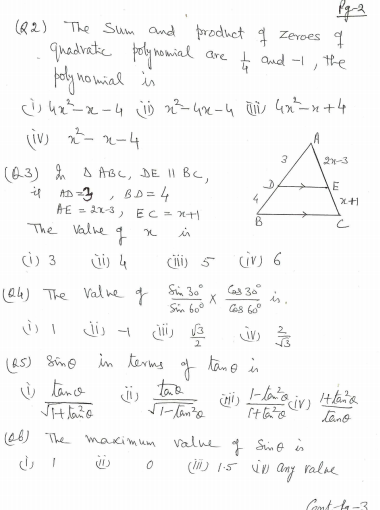 Pg-2
(Q2) The Sum and product of zeroes of
quadratic polynomial are 1/4 and -1, the
polynomial is
(i) 4x²-x-4 (ii) x²-4x-4 (iii) 4x²-x+4
(iv) x²-x-4
(Q3) In Δ ABC, DE || BC,
if AD=3, BD=4
AE = 2x-3, EC = x+1
The value of x is
A
3
2x-3
D
E
4
x+1
B
C
(i) 3 (ii) 4 (iii) 5 (iv) 6
(Q4) The value of Sin 30°/Sin 60° × Cos 30°/Cos 60° is.
(i) 1 (ii) -1 (iii) √3/2 (iv) 2/√3
(Q5) Sinθ in terms of tanθ is
(i) tanθ/√1+tan²θ (ii) tanθ/√1-tan²θ (iii) 1-tan²θ/1+tan²θ (iv) 1+tan²θ/tanθ
(Q6) The maximum value of Sinθ is
(i) 1 (ii) 0 (iii) 1.5 (iv) any value
Cont. Pg-3